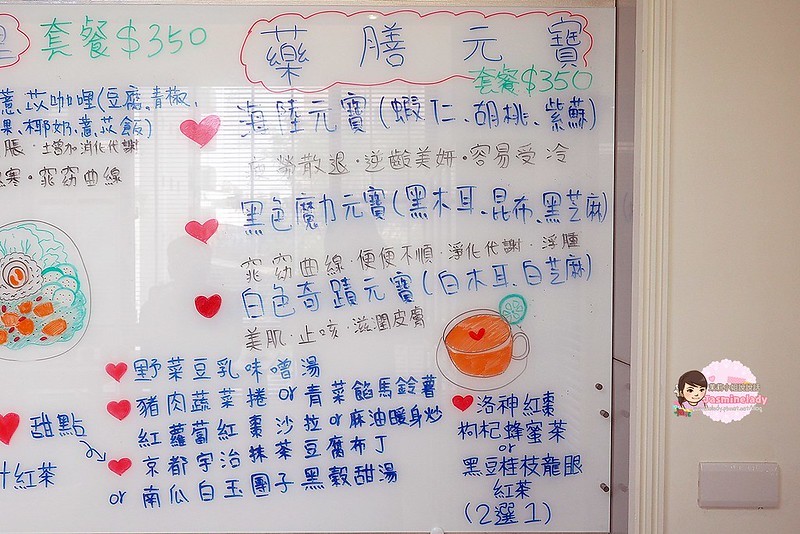 套餐$350
薏苡咖哩(豆腐、青椒、
果、椰奶、薏苡飯)
脹、增加消化代謝
寒。窕窈曲線
汁紅茶
藥膳元寶
套餐$350
海陸元寶(蝦仁、胡桃、紫蘇)
疲勞散退·逆齡美妍·容易受冷
黑色魔力元寶(黑木耳、昆布、黑芝麻)
窕窈曲線·便便不順·淨化代謝·浮腫
白色奇蹟元寶(白木耳、白芝麻)
美肌·止咳·滋潤皮膚
野菜豆乳味噌湯
豬肉蔬菜捲 or 青菜餡馬鈴薯
紅蘿蔔紅棗沙拉 or 麻油暖身炒
甜點
京都宇治抹茶豆腐布丁
or 南瓜白玉團子黑穀甜湯
洛神紅棗
枸杞蜂蜜茶
or
黑豆桂枝龍眼
紅茶
(2選1)
Jasminelady